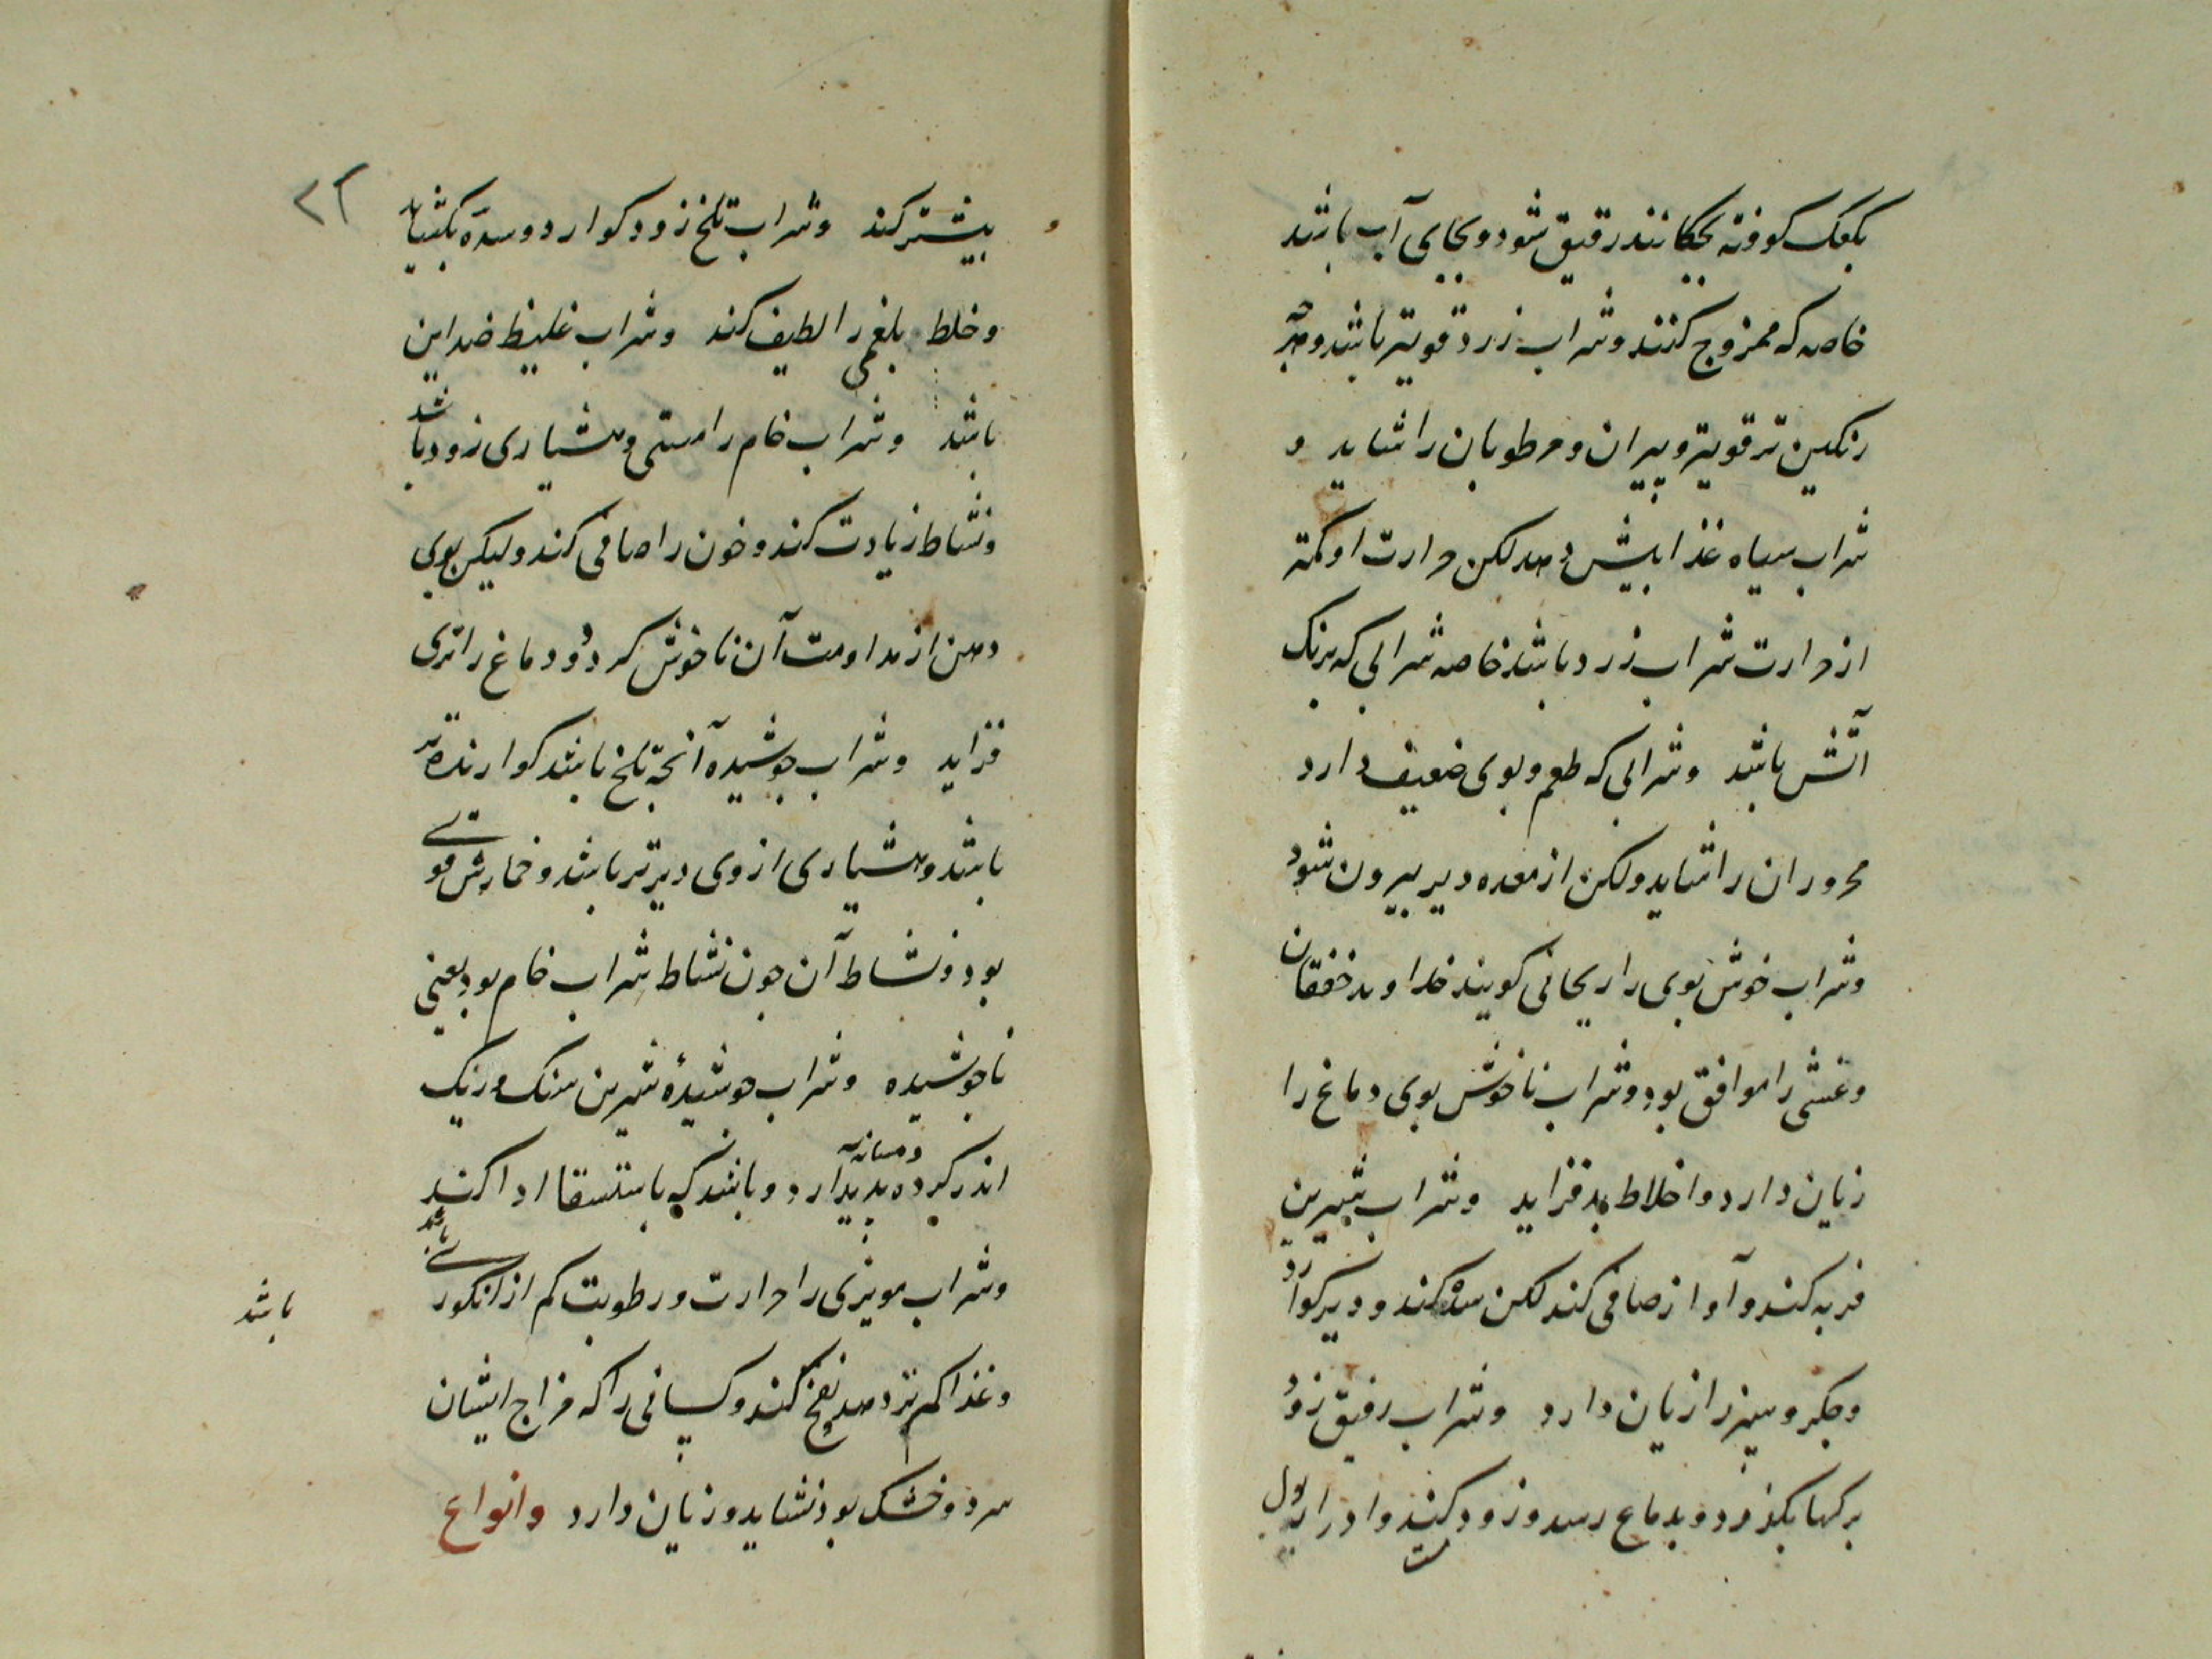 بکعک کوفته بچکانند رقیق شود و بجای آب باشد
خاصه که ممزوج کنند و شراب زرد قویتر باشد و هر
رنکین تر قویتر و پیران و مرطوبان را شاید و
شراب سیاه غذا بیش دهد لکن حرارت او کمتر
از حرارت شراب زرد باشد خاصه شرابی که برنک
آتش باشد و شرابی که طعم و بوی ضعیف دارد
محروران را شاید ولکن از معده دیر بیرون شود
و شراب خوش بوی را ریحانی کویند خداوند خفقان
و غشی را موافق بود و شراب ناخوش بوی دماغ را
زیان دارد و اخلاط بد فزاید و شراب شیرین
فربه کند و آواز صافی کند لکن سده کند و دیر کوارد
و جکر و سپرز را زیان دارد و شراب رقیق زود
برکها بکذرد و بدماغ رسد و زود مست کند و ادرار بول
۲۲
بیشتر کند و شراب تلخ زود کوارد و سده بکشاید
و خلط بلغمی را لطیف کند و شراب غلیظ ضد این
باشد و شراب خام را مستی و هشیاری زود باشد
و نشاط زیادت کند و خون را صافی کند ولیکن بوی
دهن از مداومت آن ناخوش کردد و دماغ را تری
فزاید و شراب جوشیده آنچه تلخ باشد کوارنده تر
باشد و هشیاری از وی دیرتر باشد و خمارش قوی
بود و نشاط آن چون نشاط شراب خام بود یعنی
ناجوشیده و شراب جوشیدۀ شیرین سنک و ریک
اندر کرده و مثانه پدید آرد و باشد که باستسقا ادا کند
و شراب مویزی را حرارت و رطوبت کم از انکوری باشد
باشد
و غذا کمتر دهد نفخ کند و کسانی را که مزاج ایشان
سرد و خشک بود نشاید و زیان دارد وانواع